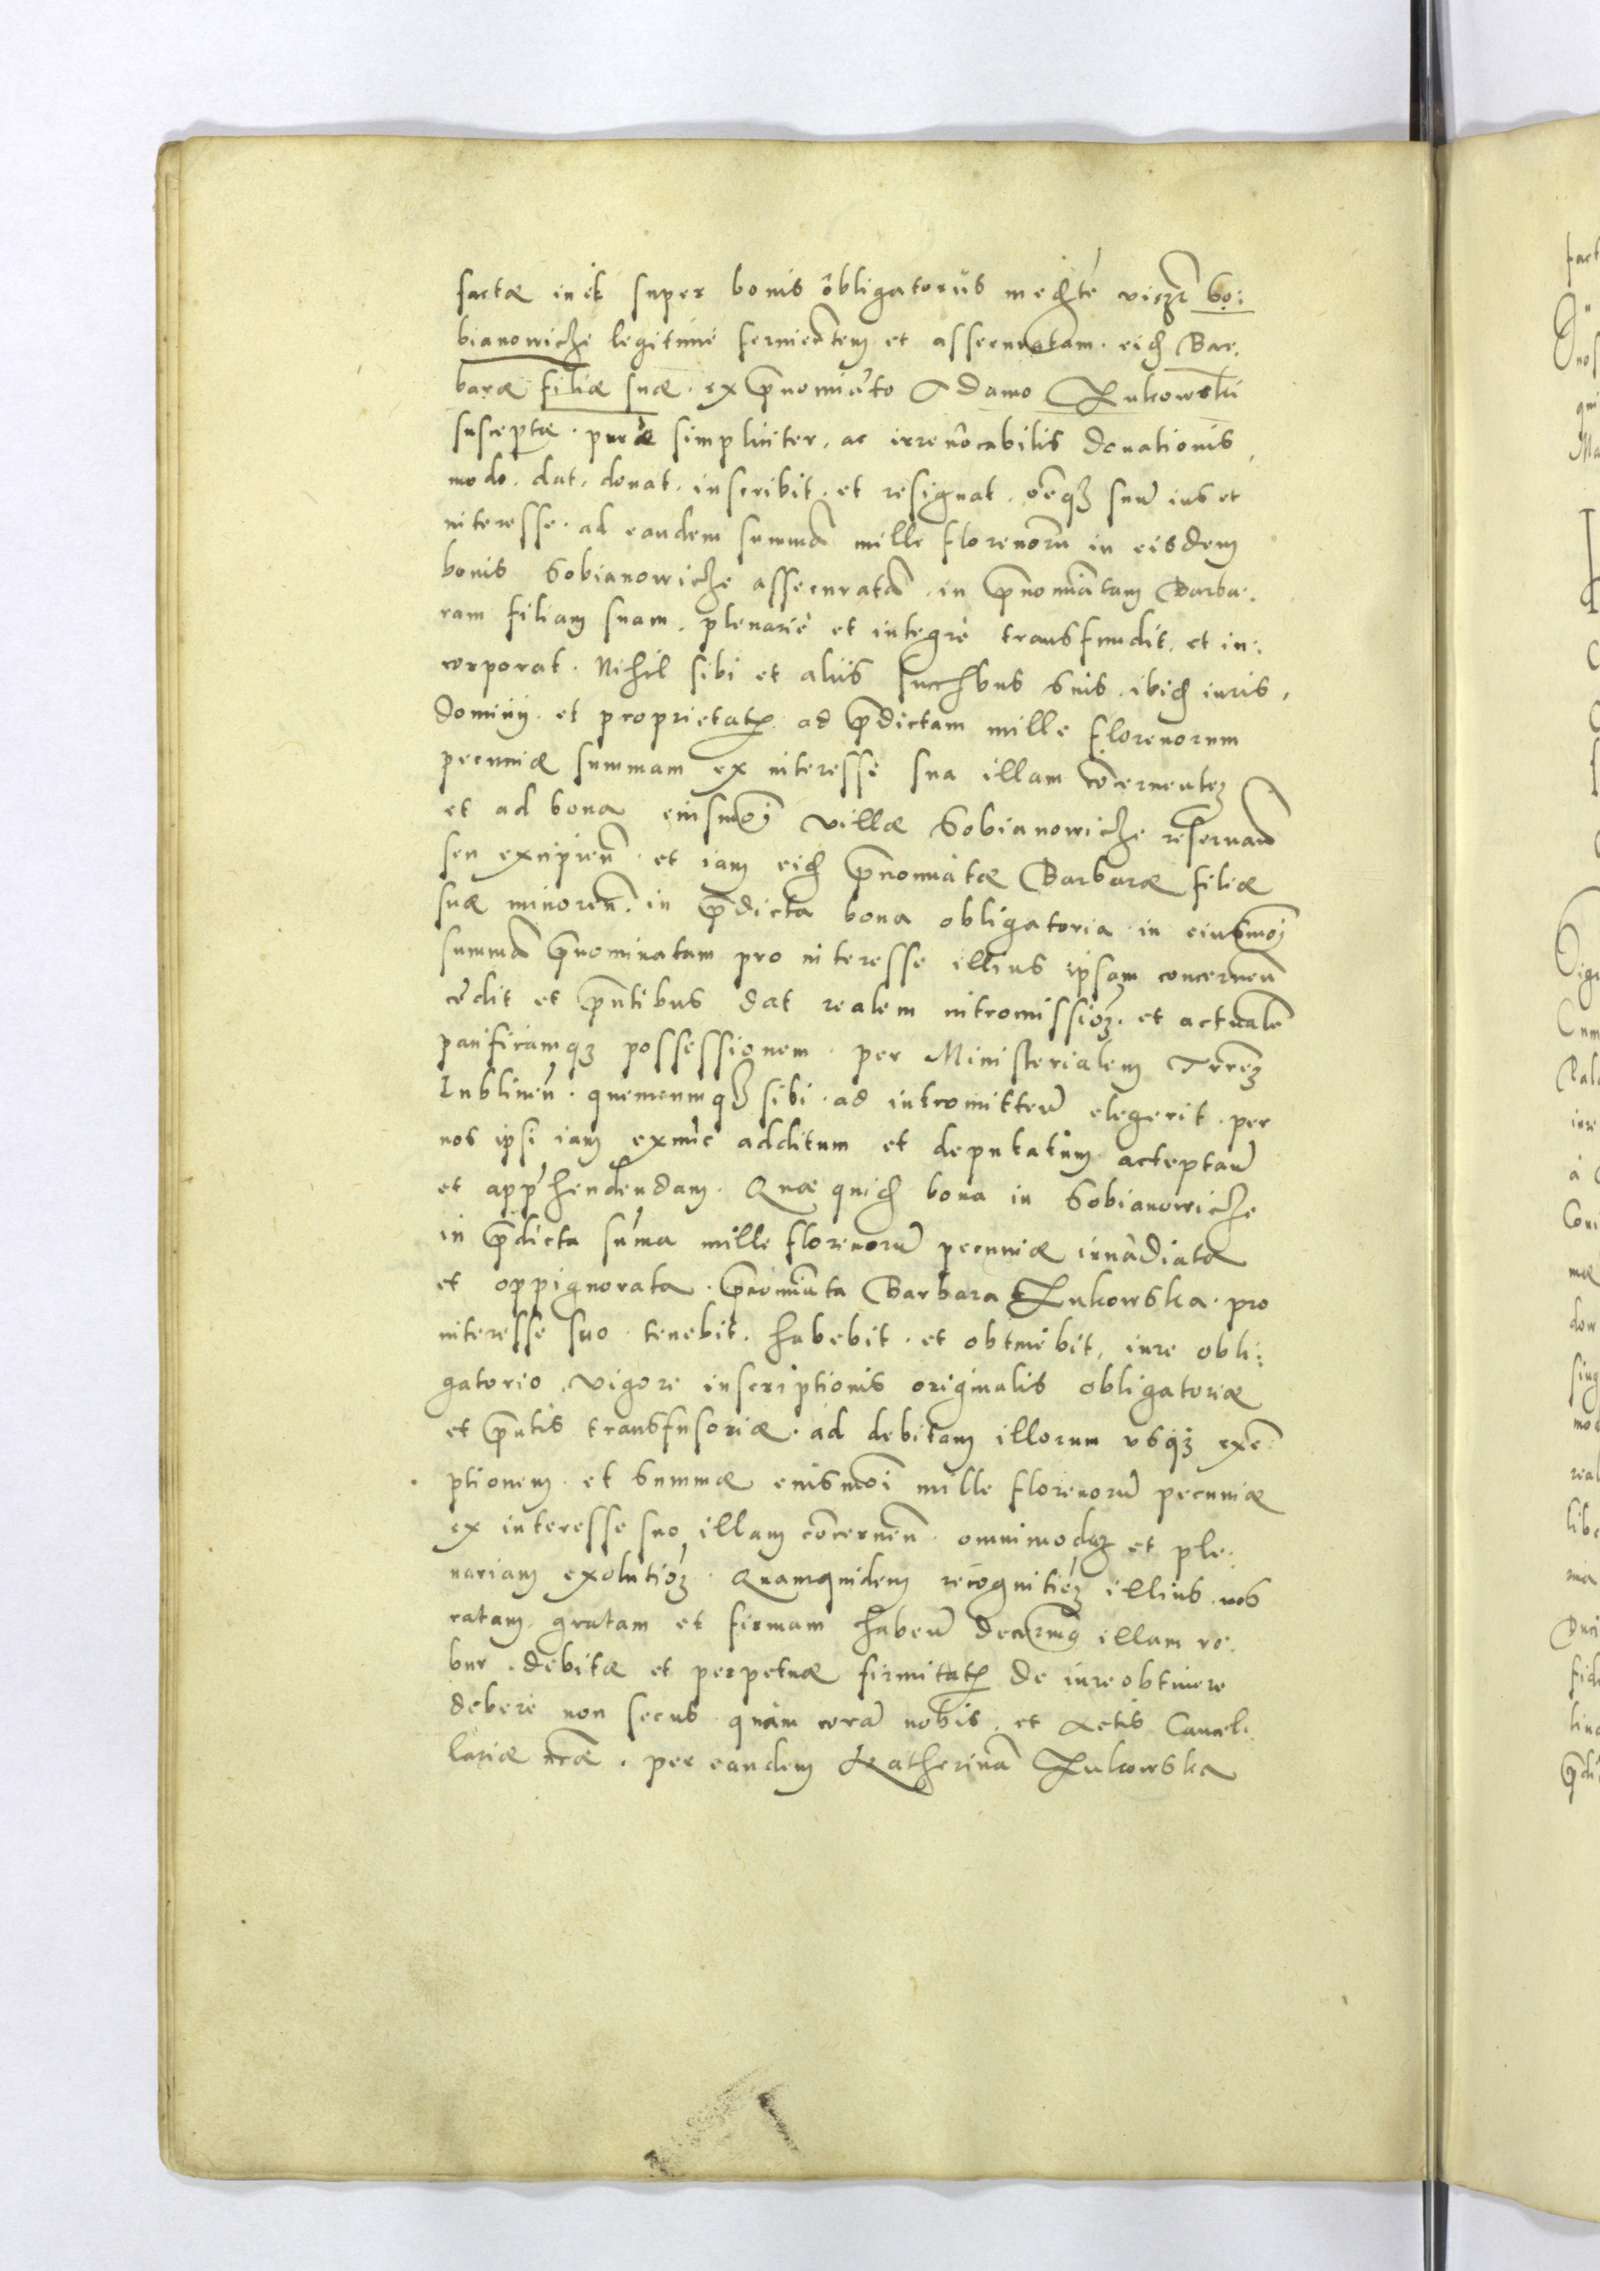 factæ in et super bonis obligatoriis
bianowicze legitime et assecuratam. eid Bar,
baræ filiæ suæ. ex prænomiato Adamo Zukowski
susceptæ. puræ simpliciter, ac irreuocabilis donationis,
modo. dat, donat, inscribit, et resignat, oēqȝ suū ius et
interesse. ad eandem summā mille florenorū in eisdem
bonis Sobianowicze assecuratā. in prænomiātam Barba:
ram filiam suam, plenarie et integre transfundit, et in:
corporat. Nihil sibi et aliis succbus suis. ibid iuris,
Dominij. et proprietatis ad prædictam mille florenorum
pecuniæ summam ex interesse sua illam cōcernentē
et ad bona eiusmōi villæ Sobianowicze reseruan
seu excipien. et iam eid prænomiatæ Barbaræ filiæ
suæ minoren. in prædicta bona obligatoria in eiusmōi
summā prænominatam pro interesse illius ipsam concernen
cēdit et pntibus dat realem intromissioēȝ. et actualē
pacificamqȝ possessionem. per Ministerialem Trrēȝ
Lublineñ. quemcunqȝ sibi. ad intromitteñ elegerit. per
nos ipsi iam exnūc additum et deputatum acceptañ
et appręhendendam. Quæ quid bona in Sobianowicze
in prædicta sūma mille florenorū pecuniæ inuadiata
et oppignorata. prænomiata Barbara Zukowska. pro
interesse suo tenebit. habebit. et obtinebit, iure obli:
gatorio, vigore inscriptionis originalis obligatoriæ
et pntis transfusoriæ. ad debitam illorum vsqȝ exē
ptionem. et summæ eiusmōi mille florenorū pecuniæ
ex interesse suo illam cōcerneñ. omnimodaȝ et ple:
nariam exolutioēȝ. Quamquidem recognitioēȝ illius nos
ratam, gratam et firmam habeñ Decreuimꝰ illam ro:
bur. debitæ et perpetuæ firmitatis de iure obtinere
debere non secus quàm corā nobis, et Actis Cancel:
lariæ nræ. per eandem Katherinā Zukowska